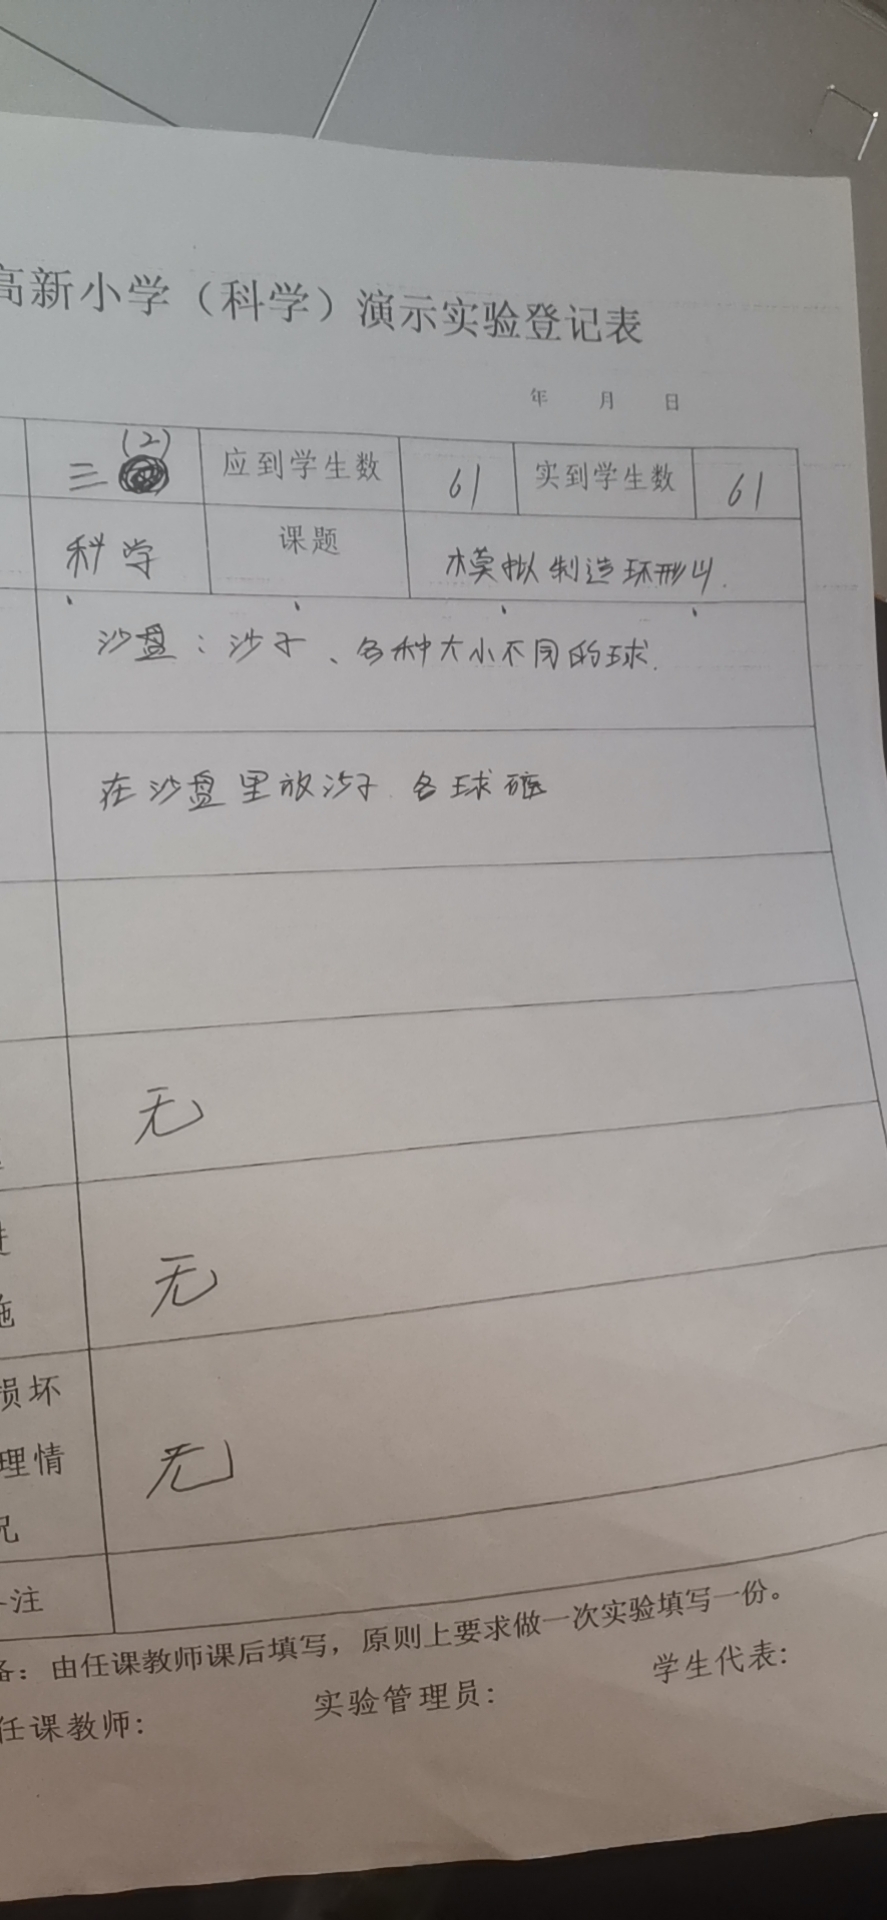 高新小学（科学）演示实验登记表
年 月 日
三(2) 应到学生数 61 实到学生数 61
科学 课题 模拟制造环形山.
沙盘：沙子、各种大小不同的球.
在沙盘里放沙子. 各球
无
进
无
施
损坏
理情
无
况
注
备：由任课教师课后填写，原则上要求做一次实验填写一份。
任课教师： 实验管理员： 学生代表：